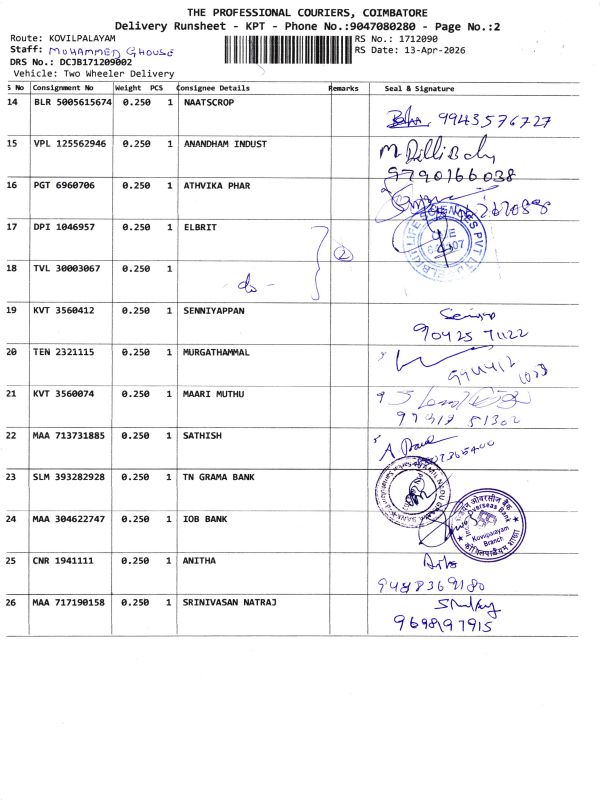 THE PROFESSIONAL COURIERS, COIMBATORE
Delivery Runsheet - KPT - Phone No.:9047080280 - Page No.:2
Route: KOVILPALAYAM
RS No.: 1712090
Staff: MOHAMMED GHOUSE
RS Date: 13-Apr-2026
DRS No.: DCJB171209002
Vehicle: Two Wheeler Delivery
S No Consignment No Weight PCS Consignee Details Remarks Seal & Signature
14 BLR 5005615674 0.250 1 NAATSCROP
9943576727
15 VPL 125562946 0.250 1 ANANDHAM INDUST
9790166038
16 PGT 6960706 0.250 1 ATHVIKA PHAR
17 DPI 1046957 0.250 1 ELBRIT
2
18 TVL 30003067 0.250 1
- do -
19 KVT 3560412 0.250 1 SENNIYAPPAN
90425 71122
20 TEN 2321115 0.250 1 MURGATHAMMAL
21 KVT 3560074 0.250 1 MAARI MUTHU
51302
22 MAA 713731885 0.250 1 SATHISH
23 SLM 393282928 0.250 1 TN GRAMA BANK
24 MAA 304622747 0.250 1 IOB BANK
Overseas Bank
Kovilpalayam
Branch
25 CNR 1941111 0.250 1 ANITHA
9488369180
26 MAA 717190158 0.250 1 SRINIVASAN NATRAJ
9698197915